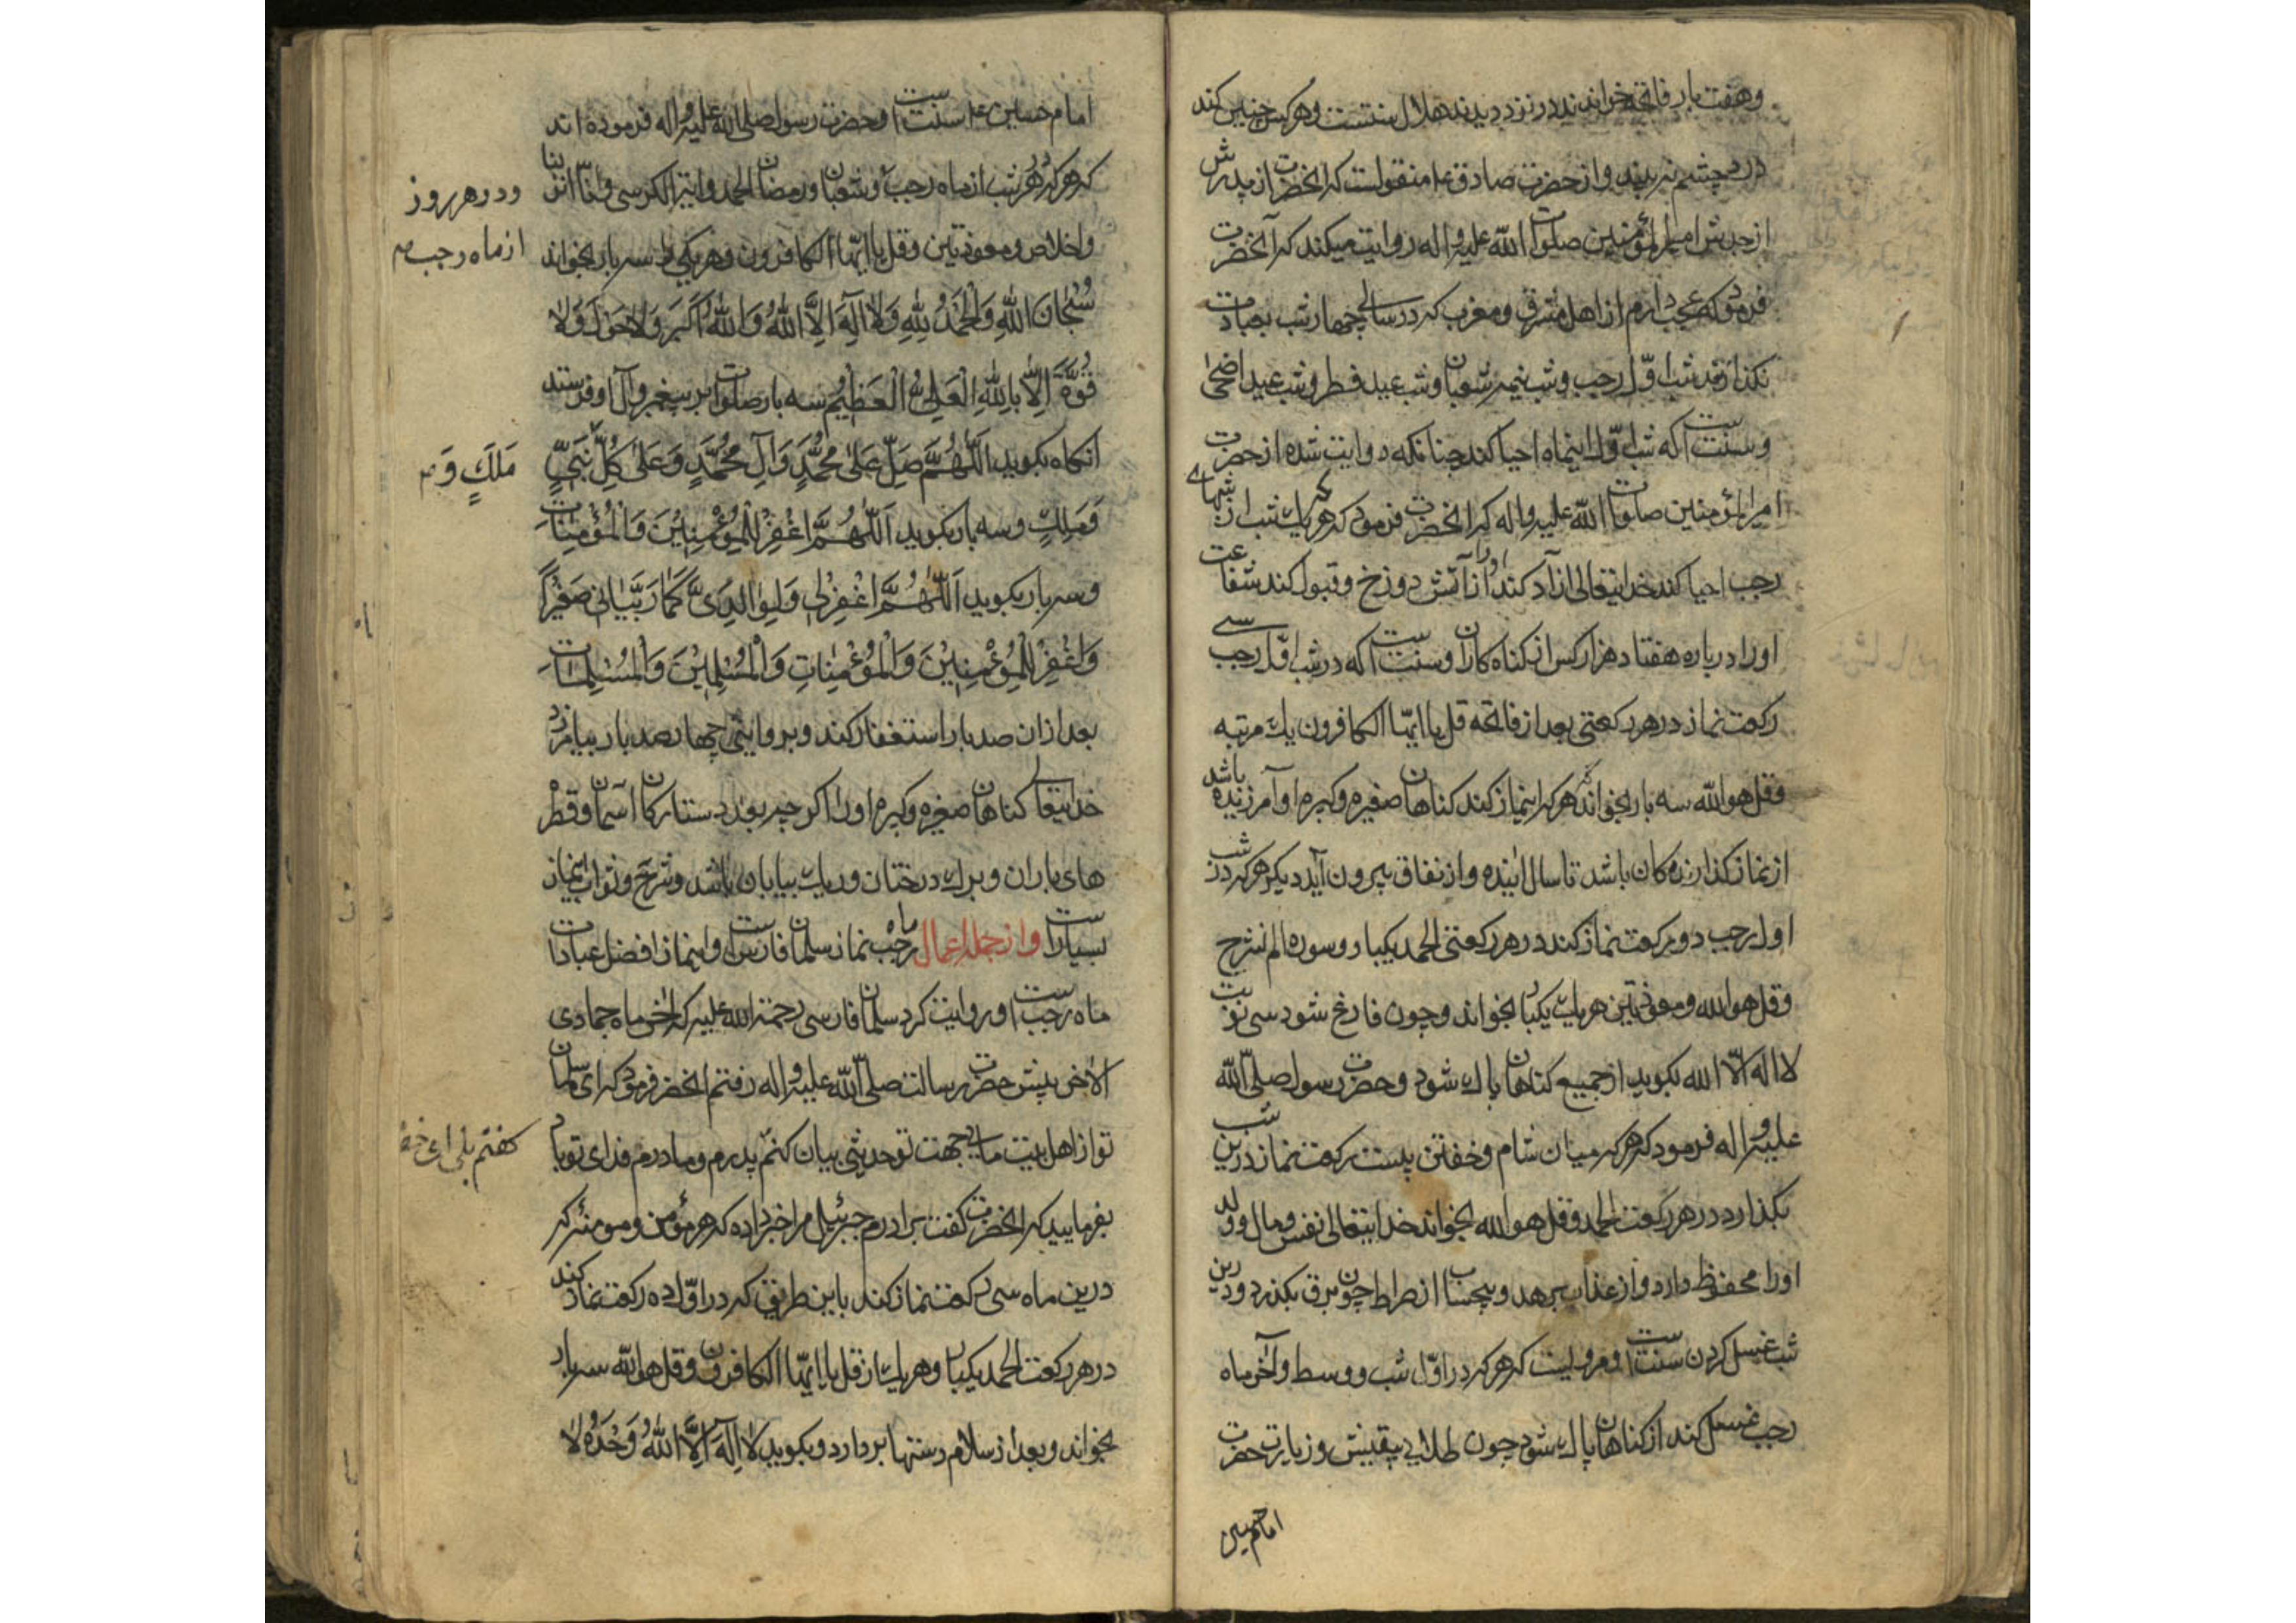 وهفت بار فاتحه خواندند در نزد دیدند هلال سنتست وهرکس چنین کند
درد چشم نبیند واز حضرت صادق ع‍ منقولست که انحضرت از پدرش
از جدش امیرالمؤمنین صلوات الله علیه واله روایت میکند که آنحضرت
فرمود که عجب دارم از اهل مشرق ومغرب که در سالی چهار شب بعبادت
نکذارند شب اوّل رجب وشب نیمه شعبان وشب عید فطر وشب عید اضحی
وسنت است که شب اوّل اینماه احیا کند چنانکه روایت شده از حضرت
امیرالمؤمنین صلوات الله علیه واله که انحضرت فرمود که هر که یک شب از شبهای
رجب احیا کند خدایتعالی ازاد کند اورا از آتش دوزخ وقبول کند شفاعت
اورا درباره هفتاد هزار کس از کناه کاران وسنت است که در شب اوّل رجب سی
رکعت نماز در هر رکعتی بعد از فاتحه قل یا ایّها الکافرون یک مرتبه
وقل هوالله سه بار بخواند که هرکه اینماز کند کناهان صغیره وکبیره او آمرزیده باشد
از نماز کذارنده کان باشد تا سال اینده واز نفاق بیرون آید دیکر هرکه در شب
اول رجب دو رکعت نماز کند در هر رکعتی الحمد یکبار وسوره الم نشرح
وقل هوالله ومعوذتین هر یک یکبار بخواند وچون فارغ شود سی نوبت
لا اله الّا الله بکوید از جمیع کناهان پاک شود وحضرت رسول صلّی الله
علیه واله فرمود که هرکه میان شام وخفتن بیست رکعت نماز درین شب
بکذارد در هر رکعت الحمد وقل هوالله بخواند خدایتعالی نفس ومال وولد
اورا محفوظ دارد واز عذاب برهد وبیحساب از صراط چون برق بکذرد ودرین
شب غسل کردن سنت است ومرویست که هرکه در اوّل شب ووسط وآخر ماه
رجب غسل کند از کناهان پاک شود چون طلای بیغش وزیارت حضرت
امام حسین
امام حسین ع‍ سنت است وحضرت رسول صلی الله علیه واله فرموده اند
که هرکه هر شب از ماه رجب وشعبان ورمضان الحمد وایة الکرسی وانّا انزلنا
ودر هر روز
از ماه رجب
واخلاص ومعوذتین وقل یا ایّها الکافرون هر یکی را سه بار بخواند
سُبْحَانَ اللّهِ وَالْحَمْدُ لِلّهِ وَلَا اِلَهَ اِلَّا اللّهُ وَاللّهُ اَکْبَر وَلَا حَوْلَ وَلَا
قُوَّةَ اِلَّا بِاللّهِ الْعَلِیِّ الْعَظِیْمِ سه بار صلوات بر پیغمبر وآل او فرستد
انکاه بکوید اَللّهُمَّ صَلِّ عَلَی مُحَمَّدٍ وَآلِ مُحَمَّدٍ وَعَلَی کُلِّ نَبِیٍّ
مَلَکٍ وَ
وَمَلَکٍ وسه بار بکوید اَللّهُمَّ اغْفِرْ لِلْمُؤْمِنِیْنَ وَالْمُؤْمِنَاتِ
وسه بار بکوید اَللّهُمَّ اغْفِرْلِی وَلِوَالِدَیَّ کَمَا رَبَّیَانِی صَغِیْرًا
وَاغْفِرْ لِلْمُؤْمِنِیْنَ وَالْمُؤْمِنَاتِ وَالْمُسْلِمِیْنَ وَالْمُسْلِمَاتِ
بعد از ان صد بار استغفار کند وبروایتی چهار صد بار بیامرزد
خدایتعالی کناهان صغیره وکبیره اورا اکر چه بعدد ستارکان اسمان وقطره
های باران وبرک درختان وریک بیابان باشد وشرح وثواب اینماز
بسیار است وازجمله اعمال ماه رجب نماز سلمان فارسی است واینماز افضل عبادات
ماه رجب است وروایت کرد سلمان فارسی رحمة الله علیه که آخر ماه جمادی
الآخر پیش حضرت رسالت صلّی الله علیه واله رفتم انحضرت فرمود که ای سلمان
تو از اهل بیت مایی جهت تو حدیثی بیان کنم پدرم ومادرم فدای تو باد
کفتم بلی ای
بفرمایید که انحضرت کفت برادرم جبرئیل مرا خبر داده که هر مؤمن ومومنه که
درین ماه سی رکعت نماز کند باین طریق که در اوّل ده رکعت نماز کند
در هر رکعت الحمد یکبار وهر یک از قل یا ایّها الکافرون وقل هوالله سه بار
بخواند وبعد از سلام دستها بردارد وبکوید لَا اِلَهَ اِلَّا اللّهُ وَحْدَهُ لَا